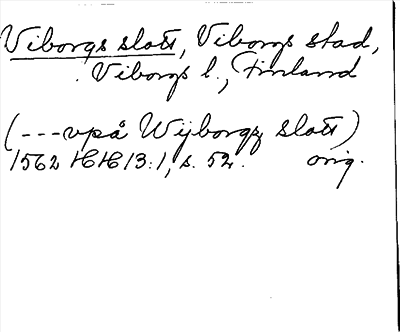 Viborgs slott, Viborgs stad,
Viborgs l., Finland
(---vpå Wijborgz slott)
1562 HH 13:1, s. 52. orig.